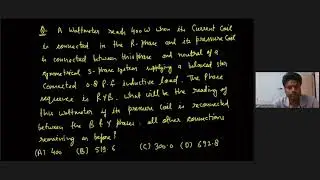 Q. A Wattmeter reads 400 W when its Current Coil
is connected in the R-phase and its pressure coil
is connected between this phase and neutral of a
symmetrical 3-phase system supplying a balanced star
Connected 0.8 P.f inductive load. The Phase
sequence is RYB. What will be the reading of
this wattmeter if its pressure coil is reconnected
between the B & Y phases. all other connections
remaining as before?
(A) 400 (B) 519.6 (C) 300.0 (D) 692.8